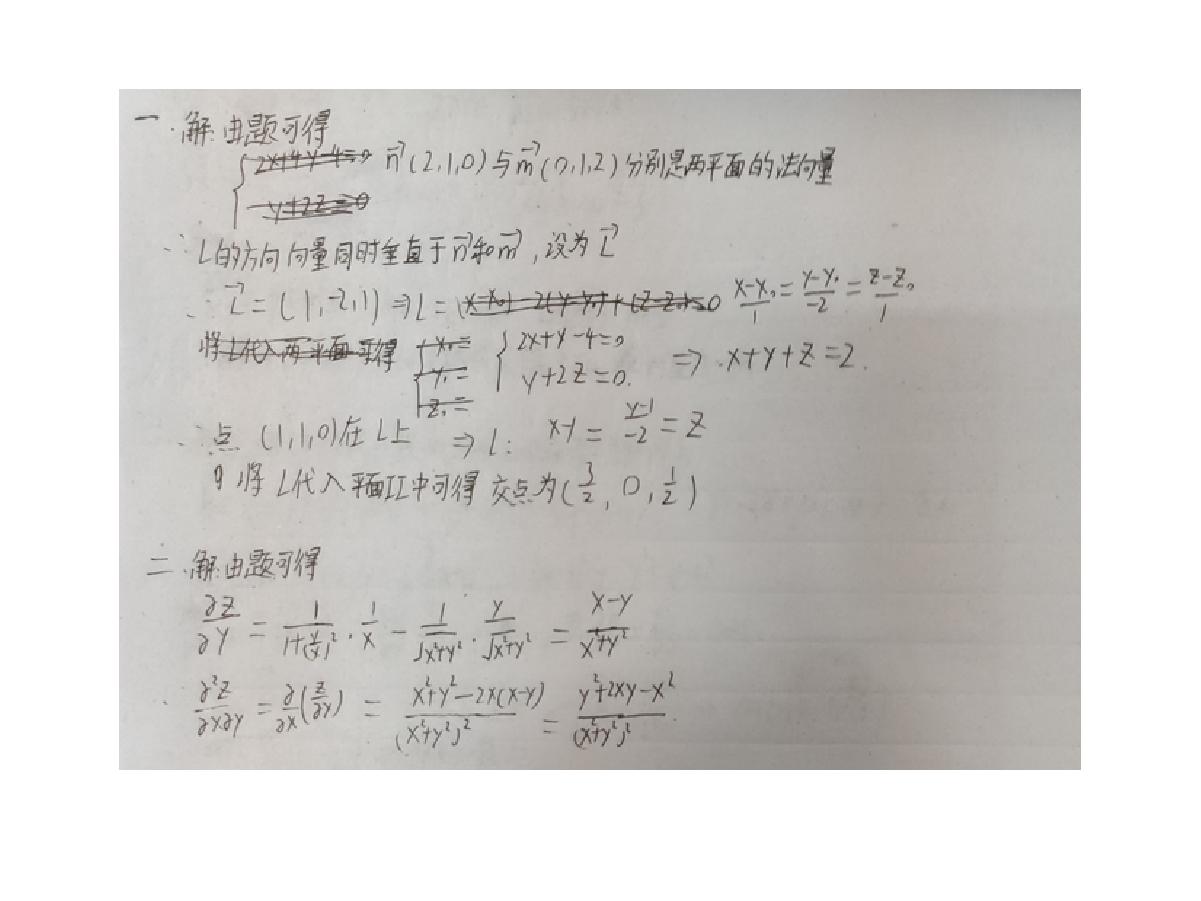 一.解:由题可得
n⃗(2,1,0)与m⃗(0,1,2)分别是两平面的法向量
∴L的方向向量同时垂直于n⃗和m⃗,设为L⃗
∴L⃗=(1,-2,1)⇒L= (x-x₀)/1=(y-y₀)/-2=(z-z₀)/1
{2x+y-4=0 y+2z=0. ⇒x+y+z=2.
∴点(1,1,0)在L上 ⇒L: x-1=(y-1)/-2=z
将L代入平面II中可得交点为(3/2,0,1/2)
二.解:由题可得
∂z/∂y=1/(1+(y/x)²)·1/x-1/√(x²+y²)·y/√(x²+y²)=(x-y)/(x²+y²)
∂²z/∂x∂y=∂/∂x(z/∂y)=(x²+y²-2x(x-y))/(x²+y²)²=(y²+2xy-x²)/(x²+y²)²